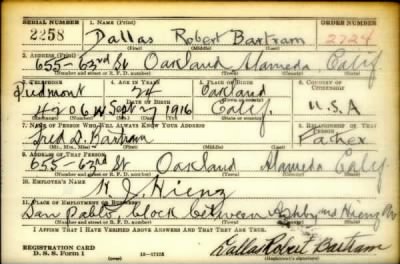 SERIAL NUMBER 1. NAME (Print) ORDER NUMBER
2258 Dallas Robert Bartram 2724
(First) (Middle) (Last)
2. ADDRESS (Print)
655-63rd St Oakland Alameda Calif.
(Number and street or R. F. D. number) (Town) (County) (State)
3. TELEPHONE 4. AGE IN YEARS 5. PLACE OF BIRTH 6. COUNTRY OF CITIZENSHIP
Piedmont 24 Oakland
DATE OF BIRTH
4206W Sept 2 1916 Calif. U.S.A
7. NAME OF PERSON WHO WILL ALWAYS KNOW YOUR ADDRESS 8. RELATIONSHIP OF THAT PERSON
Fred D. Bartram Father
(Mr., Mrs., Miss) (First) (Middle) (Last)
9. ADDRESS OF THAT PERSON
655-63rd St Oakland Alameda Calif
(Number and street or R. F. D. number) (Town) (County) (State)
10. EMPLOYER'S NAME
H J Hienz
11. PLACE OF EMPLOYMENT OR BUSINESS
San Pablo, block between Ashby
(Number and street or R. F. D. number) (Town) (County) (State)
I AFFIRM THAT I HAVE VERIFIED ABOVE ANSWERS AND THAT THEY ARE TRUE.
REGISTRATION CARD
D. S. S. Form 1
Dallas Robert Bartram
(Registrant's signature)